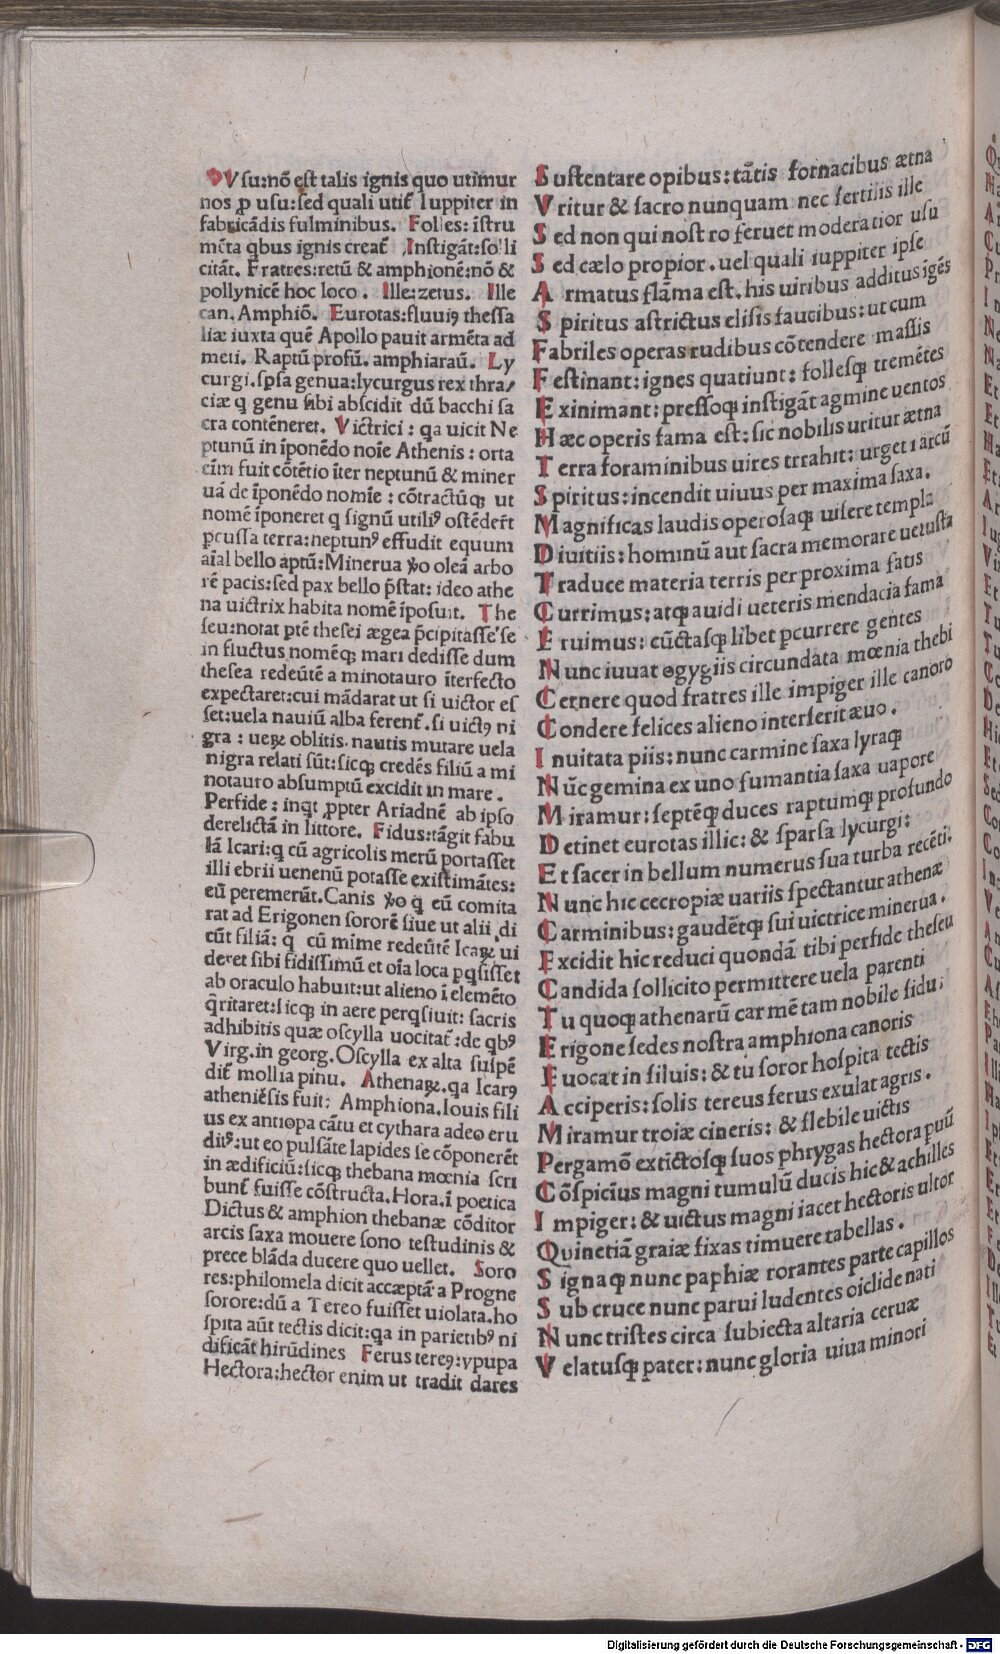 Vsu:nō est talis ignis quo utimur
nos ꝑ usu:sed quali utit̄ Iuppiter in
fabricādis fulminibus. Folles:īstru
mēta qbus ignis creat̄ ,Instigāt:solli
citāt. Fratres:retū & amphionē:nō &
pollynicē hoc loco. Ille:zetus. Ille
can. Amphiō. Eurotas:fluuiꝰ thessa
liæ iuxta quē Apollo pauit armēta ad
meti. Raptū profū. amphiaraū. Ly
curgi.spsa genua:lycurgus rex thra/
ciæ q genu sibi abscidit dū bacchi sa
cra contēneret. Victrici: qa uicit Ne
ptunū in īponēdo noīe Athenis: orta
eīm fuit cōtētio īter neptunū & miner
uā de īponēdo nomīe: cōtractūqꝫ ut
nomē īponeret q signū utiliꝰ ostēderīt
pcussa terra:neptunꝰ effudit equum
aīal bello aptū:Minerua ꝟo oleā arbo
rē pacis:sed pax bello p̄stat: ideo athe
na uictrix habita nomē īposuit. The
seu:notat ptē thesei ægea p̄cipitasse se
in fluctus nomēqꝫ mari dedisse dum
thesea redeūtē a minotauro īterfecto
expectaret:cui mādarat ut si uictor es
set:uela nauiū alba ferent̄.si uictꝰ ni
gra: ueꝝ oblitis.nautis mutare uela
nigra relati sūt:sicqꝫ credēs filiū a mi
notauro absumptū excidit in mare.
Perfide: inqt ꝓpter Ariadnē ab ipso
derelictā in littore. Fidus:tāgit fabu
lā Icari:q cū agricolis merū portasset
illi ebrii uenenū potasse existimātes:
eū peremerūt.Canis ꝟo q eū comita
rat ad Erigonen sororē siue ut alii di
cūt filiā: q cū mime redeūtē Icaꝝ ui
deret sibi fidissimū et oīa loca pqsisset
ab oraculo habuit:ut alieno ī elemēto
q̄ritaret:sicqꝫ in aere perqsiuit: sacris
adhibitis quæ oscylla uocitat̄:de qbꝰ
Virg.in georg.Oscylla ex alta suspē
dit̄ mollia pinu. Athenaꝝ.qa Icarꝰ
atheniēsis fuit: Amphiona.Iouis fili
us ex antiopa cātu et cythara adeo eru
ditꝰ:ut eo pulsāte lapides se cōponerēt
in ædificiū:sicqꝫ thebana mœnia scri
bunt̄ fuisse cōstructa.Hora.ī poetica
Dictus & amphion thebanæ cōditor
arcis saxa mouere sono testudinis &
prece blāda ducere quo uellet. Soro
res:philomela dicit accæptā a Progne
sorore:dū a Tereo fuisset uiolata.ho
spita aūt tectis dicit:qa in parietibꝰ ni
dificāt hirūdines Ferus tereꝰ:ypupa
Hectora:hector enim ut tradit dares
Sustentare opibus:tātis fornacibus ætna
Vritur & sacro nunquam nec fertilis ille
Sed non qui nostro feruet moderatior usu
Sed cælo propior.uel quali iuppiter ipse
Armatus flāma est.his uiribus additus igēs
Spiritus astrictus elisis faucibus:ut cum
Fabriles operas rudibus cōtendere massis
Festinant:ignes quatiunt: follesqꝫ tremētes
Exinimant:pressoqꝫ instigāt agmine uentos
Hæc operis fama est:sic nobilis uritur ætna
Terra foraminibus uires trrahit: urget ī arcū
Spiritus:incendit uiuus per maxima saxa.
Magnificas laudis operosaqꝫ uisere templa
Diuitiis:hominū aut sacra memorare uetusta
Traduce materia terris per proxima fatis
Currimus:atqꝫ auidi ueteris mendacia fama
Eruimus: cūctasqꝫ libet pcurrere gentes
Nunc iuuat ogygiis circundata mœnia thebi
Cernere quod fratres ille impiger ille canoro
Condere felices alieno interserit æuo.
Inuitata piis:nunc carmine saxa lyraqꝫ
Nūc gemina ex uno fumantia saxa uapore
Miramur:septēqꝫ duces raptumqꝫ profundo
Detinet eurotas illic:& sparsa lycurgi:
Et sacer in bellum numerus sua turba recēti.
Nunc hic cecropiæ uariis spectantur athenæ
Carminibus:gaudētqꝫ sui uictrice minerua.
Excidit hic reduci quondā tibi perfide theseu
Candida sollicito permittere uela parenti
Tu quoqꝫ athenarū carmē tam nobile fidu:
Erigone sedes nostra amphiona canoris
Euocat in siluis:& tu soror hospita tectis
Acciperis:solis tereus ferus exulat agris.
Miramur troiæ cineris: & flebile uictis
Pergamō extictosqꝫ suos phrygas hectora puū
Cōspicius magni tumulū ducis hic & achilles
Impiger:& uictus magni iacet hectoris ultor
Quinetiā graiæ fixas timuere tabellas.
Signaqꝫ nunc paphiæ rorantes parte capillos
Sub cruce nunc parui ludentes oiclide nati
Nunc tristes circa subiecta altaria ceruæ
Velatusqꝫ pater:nunc gloria uiua minori
Digitalisierung gefördert durch die Deutsche Forschungsgemeinschaft - DFG